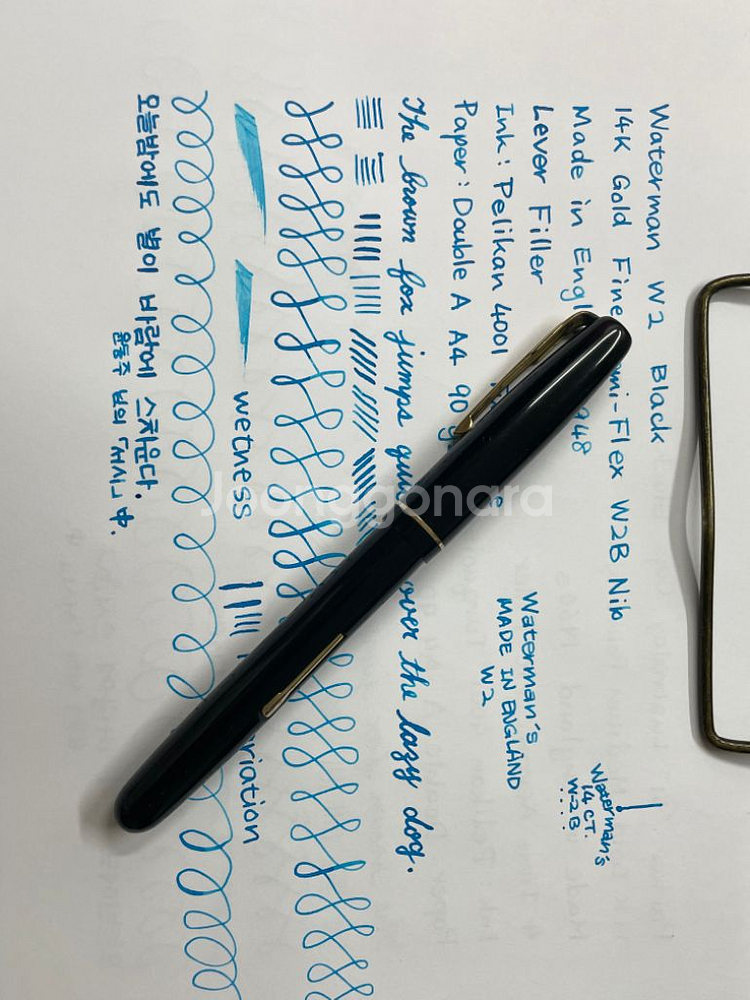 Waterman W2 Black
14K Gold Fine W2B Nib
Made in 948
Lever Filler
Ink: Pelikan 4001
Paper: Double A A4 90
Waterman's
MADE IN ENGLAND
W2
Waterman's
14 CT.
W-2B
The brown fox jumps over the lazy dog.
wetness
오늘밤에도 별이 바람에 스치운다.
윤동주 님의 「서시」 中.
Joonggonara